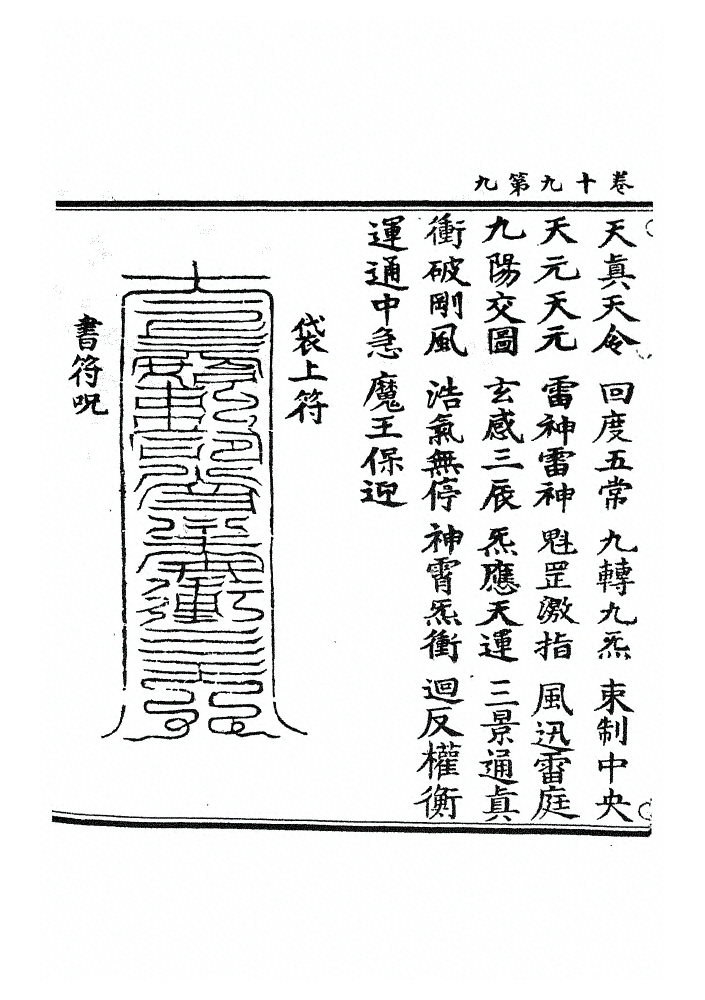 卷十九第九
天真天令　回度五常　九轉九炁　束制中央
天元天元　雷神雷神　魁罡激指　風迅雷庭
九陽交圖　玄感三辰　炁應天運　三景通真
衝破剛風　浩氣無停　神霄炁衝　迴反權衡
運通中急　魔王保迎
袋上符
書符呪